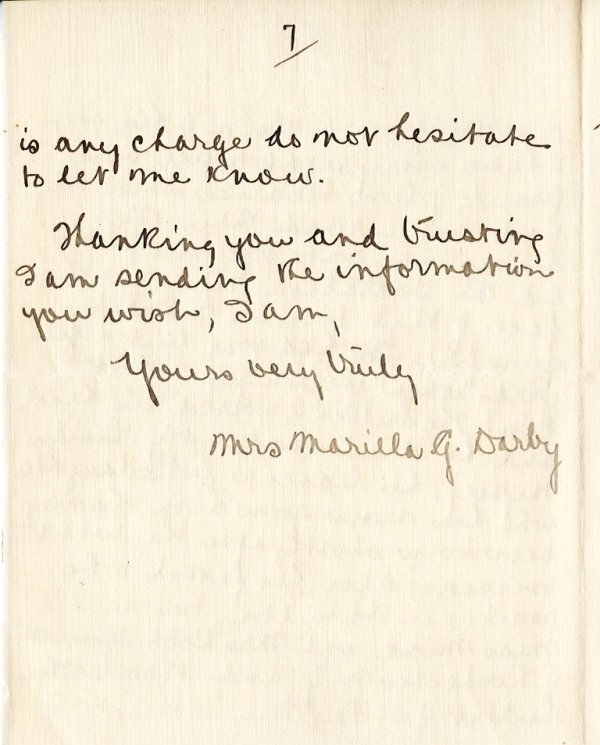 7
is any charge do not hesitate
to let me know.
Thanking you and trusting
I am sending the information
you wish, I am,
Yours very truly
Mrs Marilla G. Darby